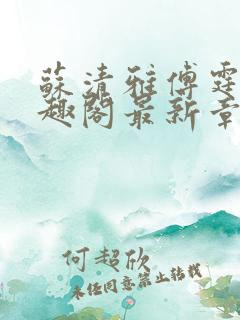 蘇清雅傅霆
趣閣最新章
何超欣
未经同意禁止转载